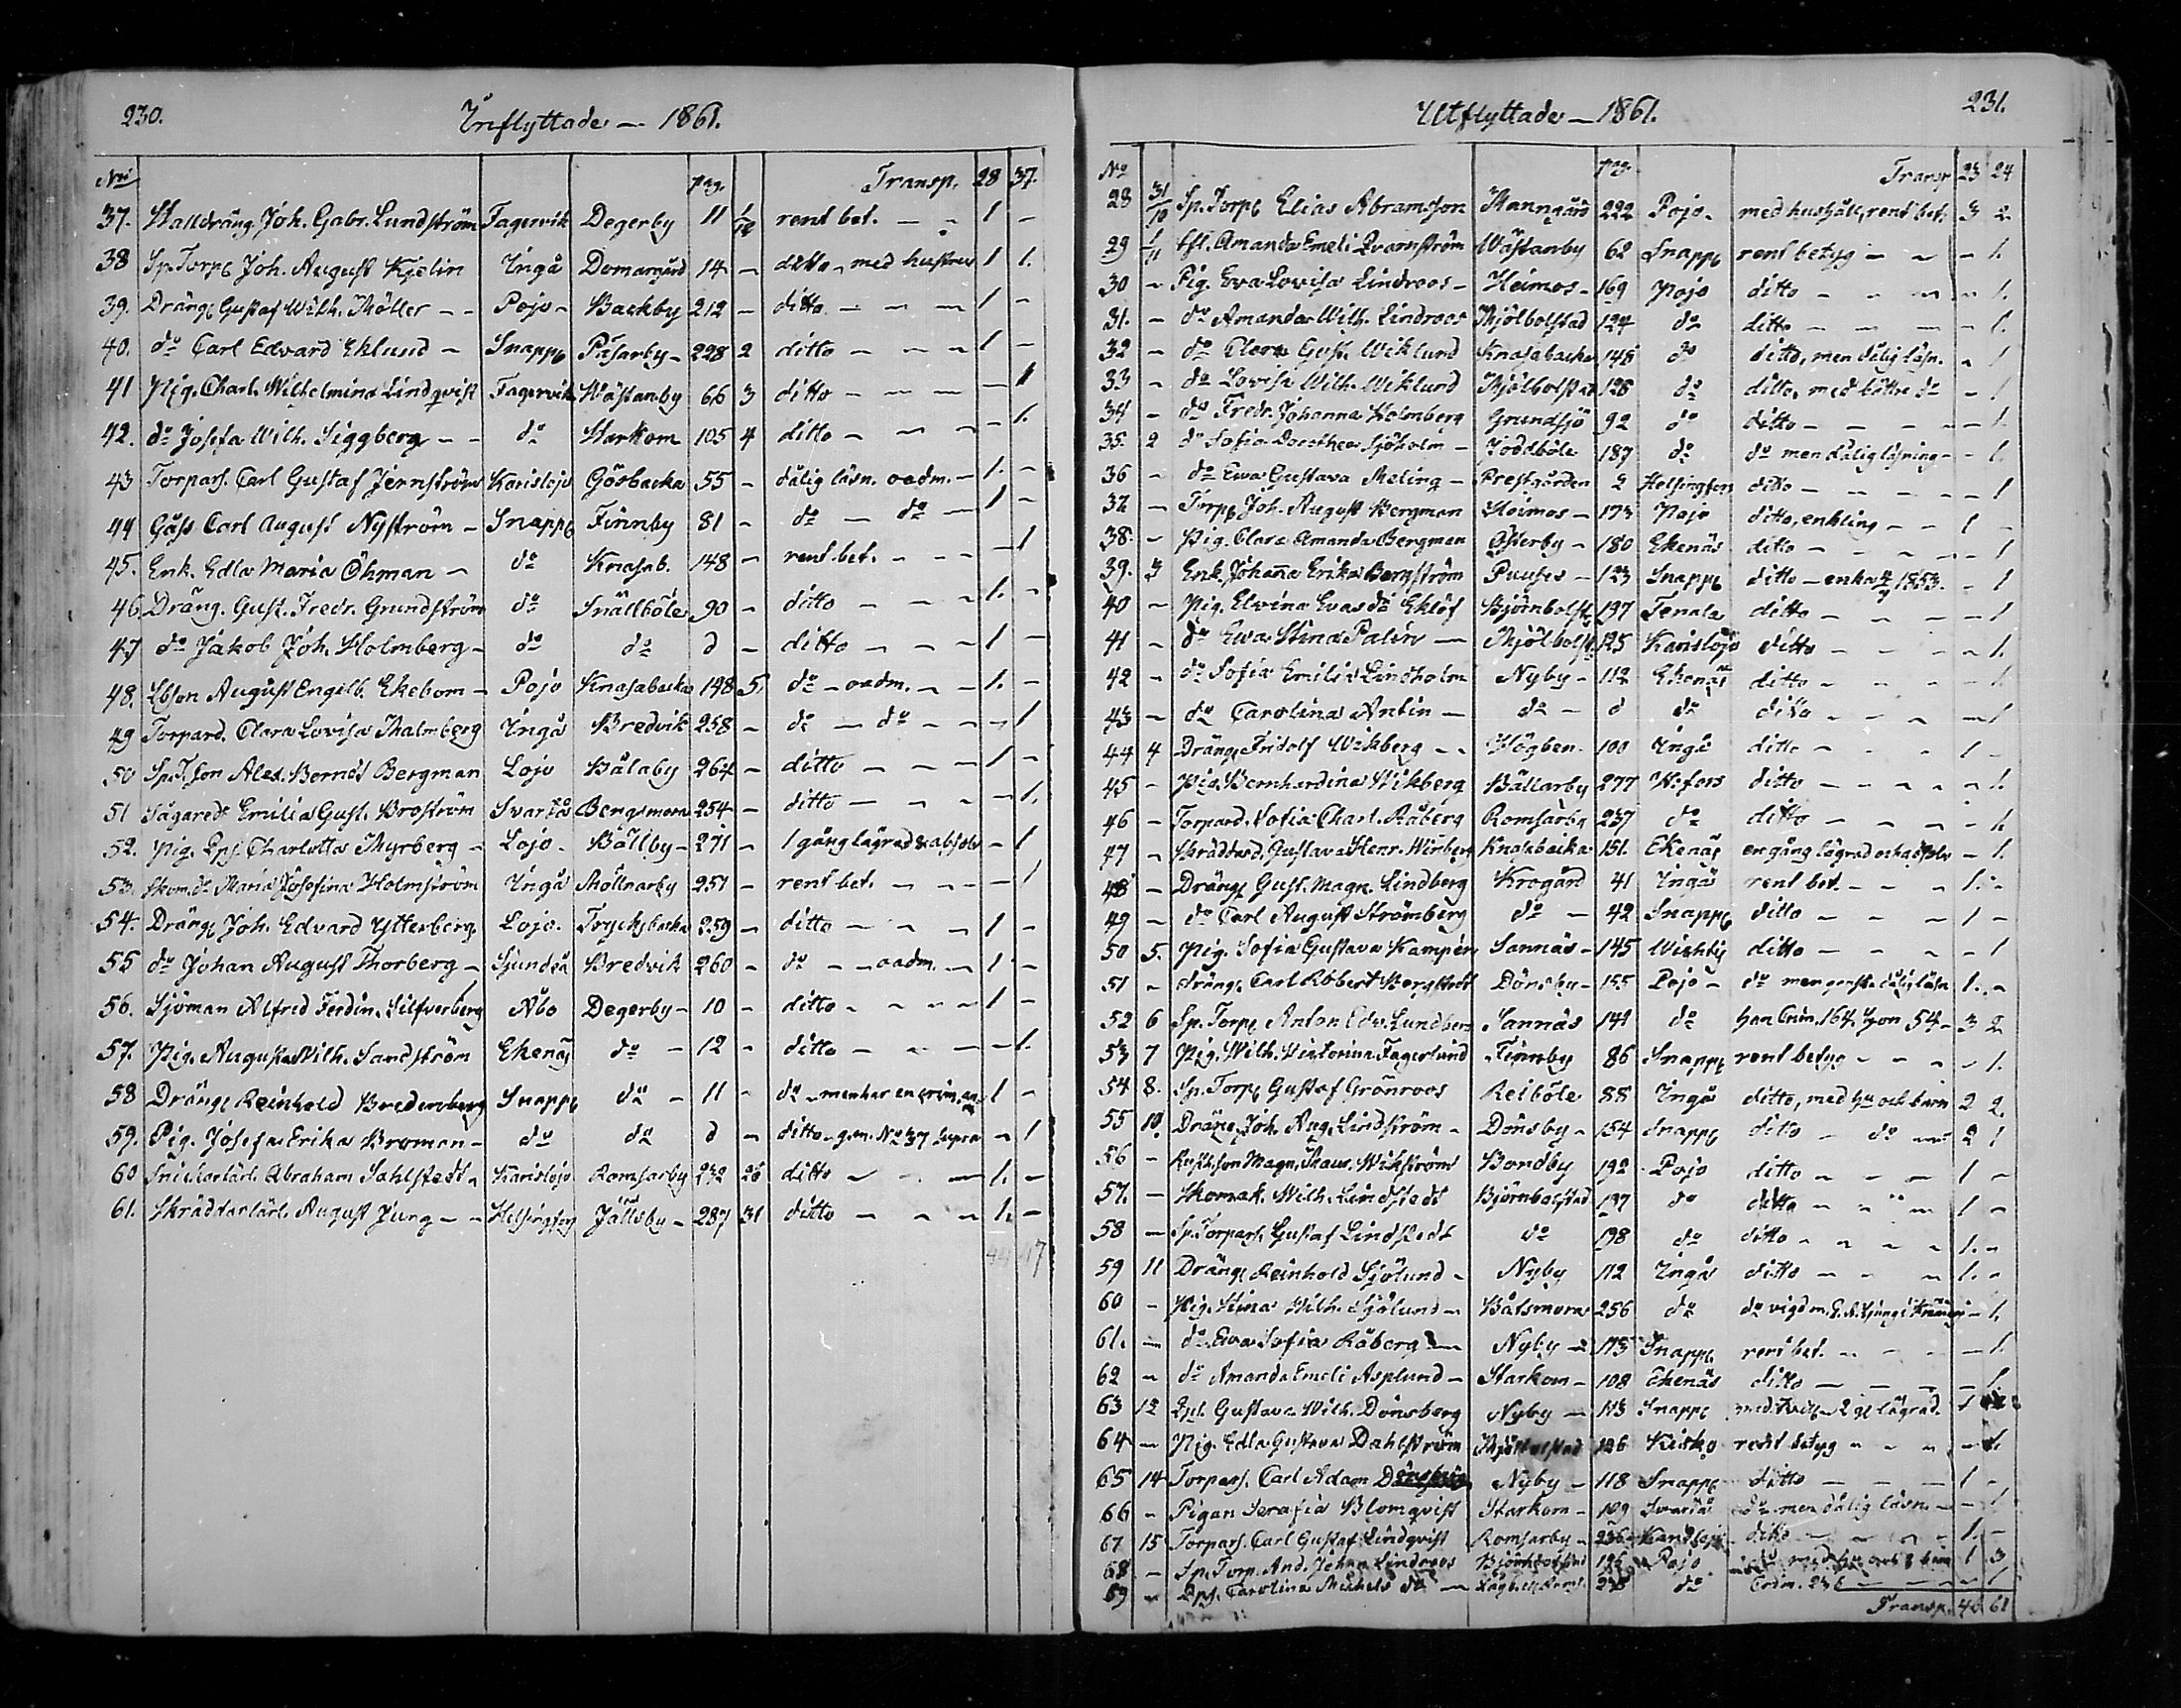 230.
Inflyttade — 1861.
No Pag. Transp. 28 37.
37. Stalldräng Joh. Gabr. Lundström Fagervik Degerby 11 1/12 rent bet. — - 1 -
38 Sp. Torp. Joh. August Kjelin Ingå Domargård 14 - ditto - med hustru 1 1.
39. Dräng Gustaf Wilh. Möller - - Pojo - Backby 212 - ditto - - - 1 -
40. do Carl Edvard Eklund - Snapp. Påsarby - 228 2 ditto - - - 1 -
41 Pig. Charl. Wilhelmina Lindqvist Fagervik Wästanby 66 3 ditto - - - - 1
42. do Josefa Wilh. Siggberg - - do Starkom 105 4 ditto - - - - 1.
43 Torpars. Carl Gustaf Jernström Karislojo Görbacka 55 - dålig läsn. oadm. - 1. -
44 Gåss Carl August Nyström - Snapp. Finnby 81 - do - do - 1 -
45. Enk. Edla Maria Öhman - do Knasab. 148 - rent bet. - - - - 1
46 Dräng. Gust. Fredr. Grundström do Snällböle 90 - ditto - - - 1. -
47 do Jakob Joh. Holmberg - do do d - ditto - - - 1 -
48. Ebson August Engelb. Ekebom - Pojo Knasabacka 148 5. do - oadm. - - 1. -
49 Torpard. Clara Lovisa Malmberg Ingå Bredvik 258 - do - do - - - 1
50 Sp.T.son Alex. Berndt Bergman Lojo Bålaby 264 - ditto - - - 1 -
51 Sågared. Emilia Gust. Broström Svartå Bengsmora 254 - ditto - - - - 1.
52. Pig. Qps. Charlotta Myrberg - Lojo - Bällby - 271 - 1 gång lägrad & absolv - 1
53. Skom.dr Maria Josefina Holmström Ingå Möllnarby 251 - rent bet. - - - - 1
54. Dräng Joh. Edvard Ytterberg. Lojo. Trycksbacka 259 - ditto - - - 1 -
55 do Johan August Thorberg - Sjundeå Bredvik 260 - do - - oadm. - 1 -
56. Sjöman Alfred Ferdin. Silfverberg Åbo Degerby - 10 - ditto - - - - 1 -
57. Pig. Augusta Wilh. Sandström Ekenäs do - 12 - ditto - - - - 1.
58 Dräng Reinhold Bredenberg Snapp. do - 11 - do - men har en crim. 1 -
59. Pig. Josefa Erika Broman - do do d - ditto - gm. No 37 supra - 1
60 Snickarlärl. Abraham Sahlstedt - Karislojo Romsarby 232 26 ditto - - - 1. -
61. Skräddarlärl. August Jung - - Helsingfors Jällsby - 287 31 ditto - - - 1. -
44 47
Utflyttade — 1861.
231.
No Pag. Transp 23 24
28 31/10 Sp. Torp. Elias Abramsson Manngård 222 Pojo - med hushåll, rent bet. 3 2
29 1/11 Amanda Emeli Qvarnström Wästanby 62 Snapp. rent betyg - - - 1.
30 - Pig. Eva Lovisa Lindroos - Heimos - 169 Pojo ditto - - - - 1.
31. - do Amanda Wilh. Lindroos Mjölbolstad 124 do ditto - - - - 1.
32 - do Clara Gust. Wiklund Knasabacka 148 do ditto, men dålig läsn. - 1
33 - do Lovisa Wilh. Wiklund Mjölbolstad 128 do ditto, med bättre do - 1
34 - do Fredr. Johanna Holmberg Grundsjö 92 do ditto - - - - - 1.
35. 2 do Sofia Dorothea Sjöholm - Joddböle 187 do do men dålig läsning - - 1.
36 - do Eva Gustava Meling - Prestgården 2 Helsingfors ditto - - - - - 1
37 - Torp. Joh. August Bergman Heimos - 173 Pojo ditto, enkling - - 1 -
38. - Pig. Clara Amanda Bergman Österby - 180 Ekenäs ditto - - - - - 1
39. 3 Enk. Johanna Erika Bergström Puuses - 123 Snapp. ditto - enka 1853. - 1
40 - Pig. Elvina Evasdr Eklöf Björnbolst. 197 Tenala ditto - - - - 1
41 - do Eva Stina Palin - Mjölbolst. 125 Karislojo ditto - - - - 1.
42 - do Sofia Emilia Lindholm Nyby - 112 Ekenäs ditto - - - - 1.
43 - do Carolina Antin - do - d do ditto - - - - 1
44 4 Dräng Fridolf Wikberg - - Högben. 100 Ingå ditto - - - 1 -
45 - Pig. Bernhardina Wikberg Bällarby 277 H:fors ditto - - - - - 1.
46 - Torpard. Sofia Charl. Råberg Romsarby 237 do ditto - - - - 1.
47 - Skräddard. Gustava Henr. Wirberg Knasabacka 151. Ekenäs en gång lägrad och absolv. - 1.
48 - Dräng Gust. Magn. Lindberg Krogård 41 Ingå rent bet. - - - 1. -
49 - do Carl August Strömberg do - 42 Snapp. ditto - - - 1 -
50 5. Pig. Sofia Gustava Kampén Sannäs - 145 Wichtis ditto - - - - 1
51 - dräng. Carl Robert Bergstedt Dönsby - 155 Pojo - do men ganska dålig läsn 1. -
52 6 Sp. Torp. Anton Edv. Lundberg Sannäs 141 do han Crim. 164. hon 54 - 3 2
53 7 Pig. Wilh. Victorina Fagerlund Finnby 86 Snapp. rent betyg - - - - 1.
54 8. Sp. Torp. Gustaf Grönroos Reiböle 88 Ingå ditto, med hu och barn 2 2.
55 10. Dräng. Joh. Aug. Lindström - Dönsby - 154 Snapp. ditto - do - 2 1
56 - Rusth.son Magn. Maur. Wikström Bondby 192 Pojo ditto - - - 1 -
57. - Skomak. Wilh. Lindstedt Björnbolstad 197 do ditto - - - 1 -
58 - Sp. Torpars. Gustaf Lindstedt do 198 do ditto - - - - 1. -
59 11 Dräng Reinhold Sjölund - Nyby 112 Ingå ditto - - - 1. -
60 - Pig. Stina Wilh. Sjölund - Båtsmora 256 do do vigd m. - 1.
61. - do Eva Sofia Råberg - Nyby - 113 Snapp. rent bet. - - - - 1.
62 - do Amanda Emeli Asplund - Starkom - 108 Ekenäs ditto - - - - 1
63 12 Qps. Gustava Wilh. Dönsberg Nyby - 113 Snapp. 2 g. lägrad. 1
64 - Pig. Edla Gustava Dahlström Mjölbolstad 126 Kisko rent betyg - - - - 1.
65 14 Torpars. Carl Adam Nyby - 118 Snapp. ditto - - - 1 -
66 - Pigan Serafia Blomqvist Starkom - 109 Svartå do men dålig läsn. - - 1
67 15 Torpars. Carl Gustaf Lindqvist Romsarby - 236 Karislojo ditto - - - 1. -
68 - Sp. Torp. And. Johan Lindroos Björnbolstad 196 Pojo med hu och 3 barn 1 3
69 - Qps. Carolina Michels dr - 238 do Crim. 236 - - - - 1
Transp. 40 61